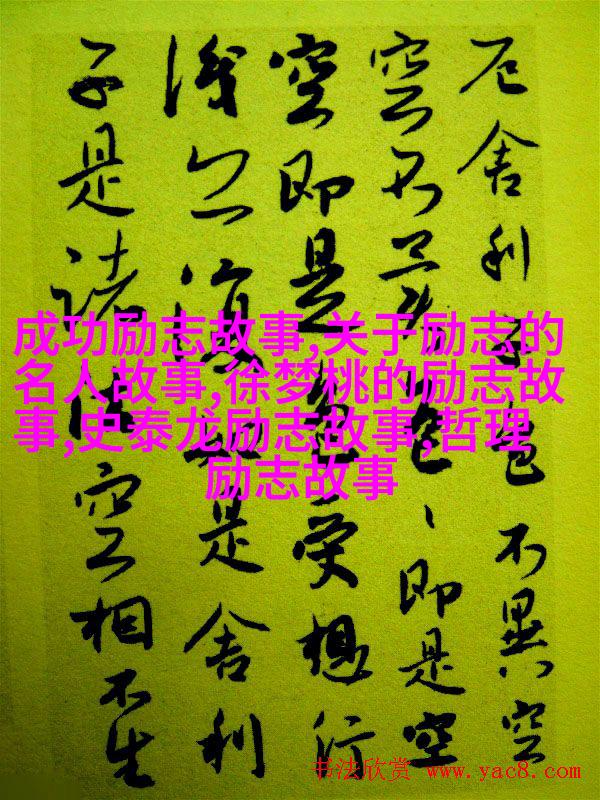 厄舍利子色不異空
空不異色〻即是空
空即是色受想行
識亦復如是舍利
子是諸法空相不生
成功励志故事,关于励志的
名人故事,徐梦桃的励志故
事,史泰龙励志故事,哲理
励志故事
书法欣赏 www.yac8.com